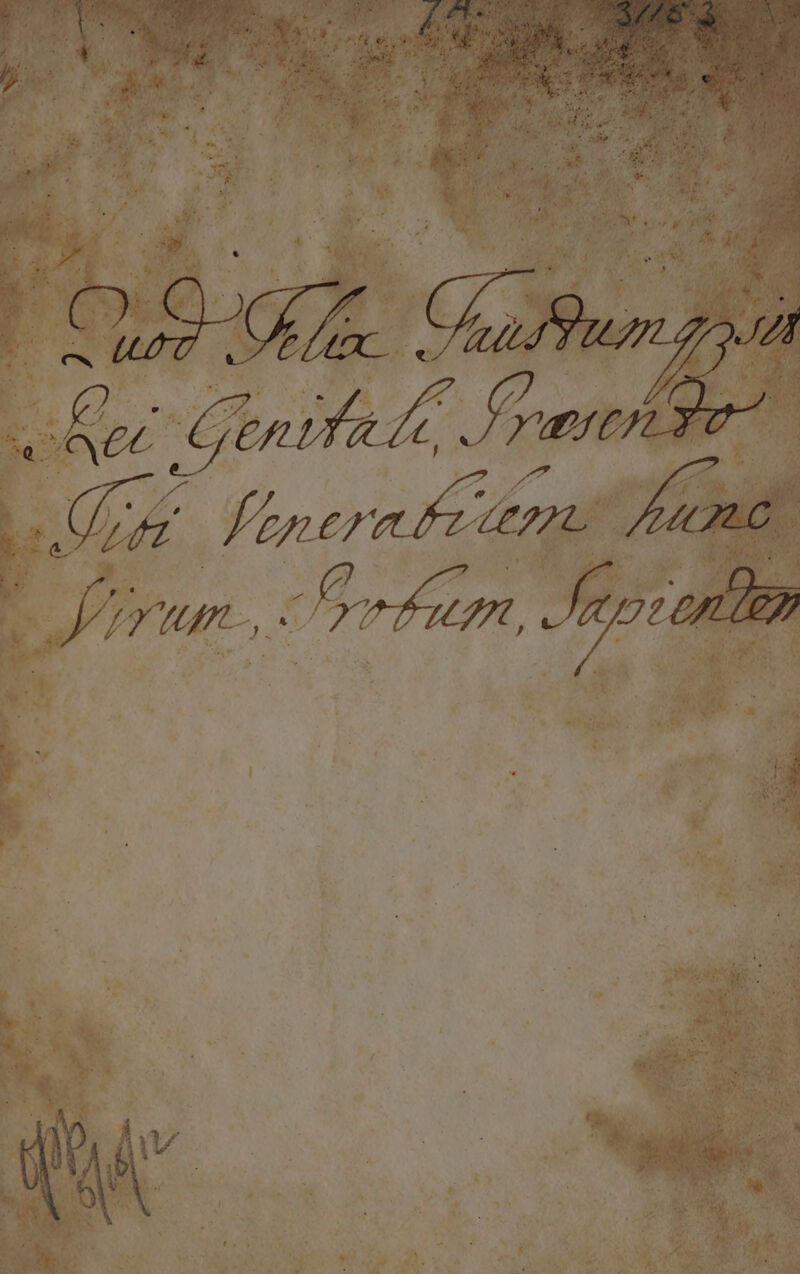 Quod Felix Faustumq, sit
Rei Genitali, Præsento
Tibi Venerabilem hunc
Virum, Probum, Sapientem